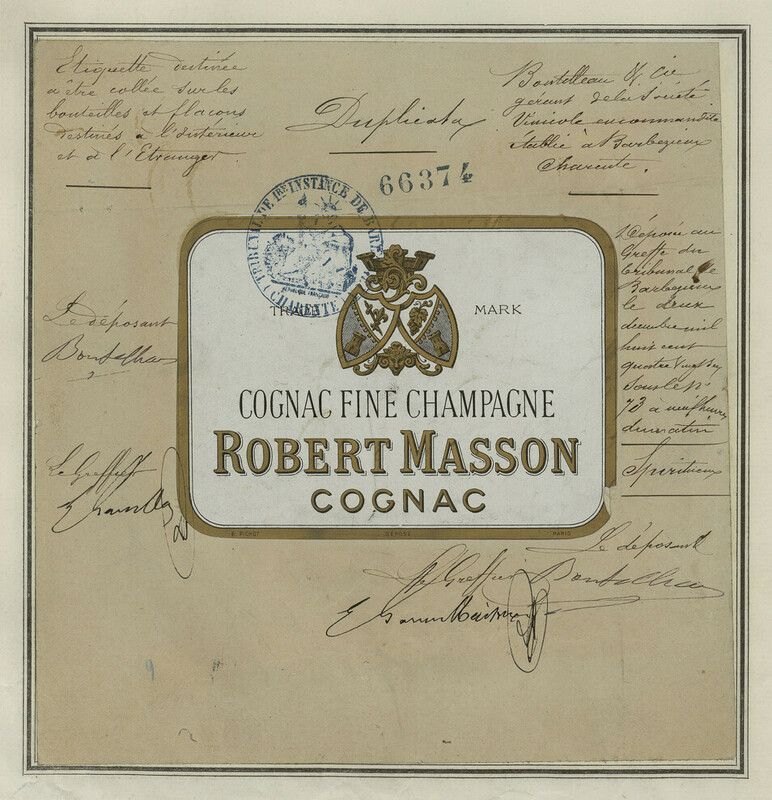 Etiquette destinée
à être collée sur les
bouteilles et flacons
destinés à l'Intérieur
et à l'Etranger.
Duplicata
Boutelleau & Cie
gérant de la Société
Vinicole en commandite
établie à Barbezieux
Charente.
66374
TRIBUNAL DE 1RE INSTANCE DE BARB
RÉPUBLIQUE FRANÇAISE
(CHARENTE
Déposée au
Greffe du
tribunal de
Barbezieux
le deux
décembre mil
huit cent
quatre vingt
sous le No
73 à neuf heures
du matin
Spiritueux
Le déposant
Boutelleau
Le Greffier
TRADE MARK
COGNAC FINE CHAMPAGNE
ROBERT MASSON
COGNAC
E. PICHOT DÉPOSÉ PARIS
Le déposant
Le Greffier Boutelleau